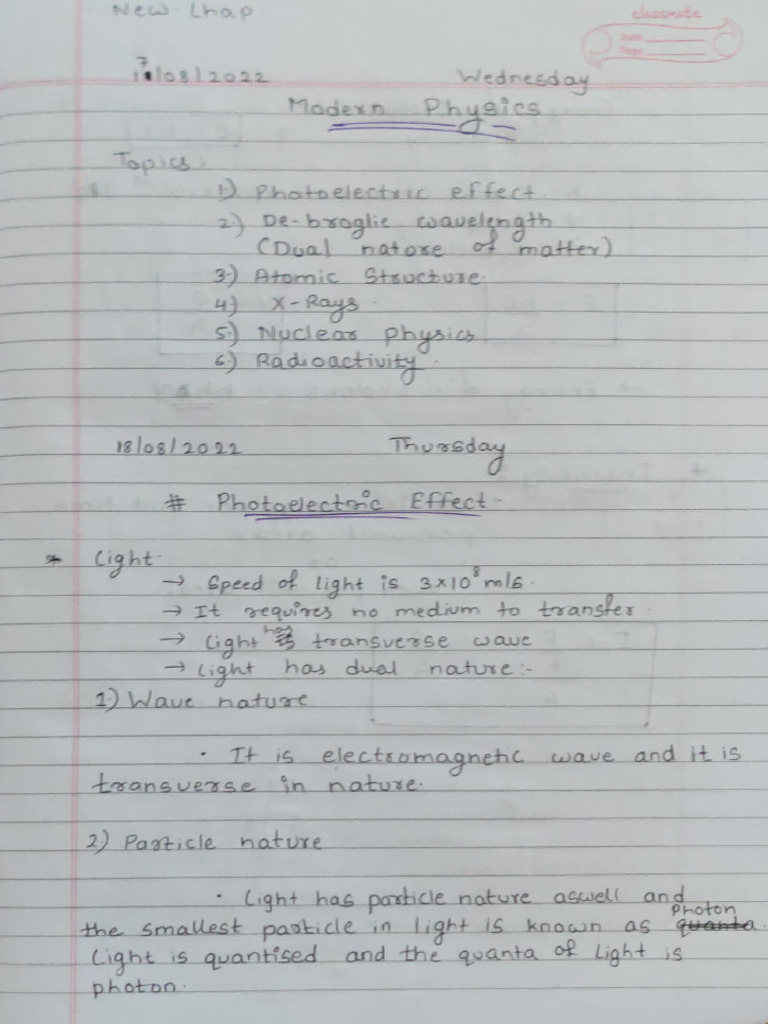 New Chap.
classmate
Date
Page
17/08/2022 Wednesday
Modern Physics
Topics:
1) Photoelectric effect.
2) De-broglie wavelength
(Dual nature of matter)
3) Atomic Structure.
4) X-Rays.
5) Nuclear Physics
6) Radioactivity.
18/08/2022 Thursday
# Photoelectric Effect -
* Light.
→ Speed of light is 3×10⁸ m/s.
→ It requires no medium to transfer.
→ Light has transverse wave
→ Light has dual nature:-
1) Wave nature
· It is electromagnetic wave and it is
transverse in nature.
2) Particle nature
· Light has particle nature aswell and
the smallest particle in light is known as quanta photon.
Light is quantised and the quanta of Light is
photon.